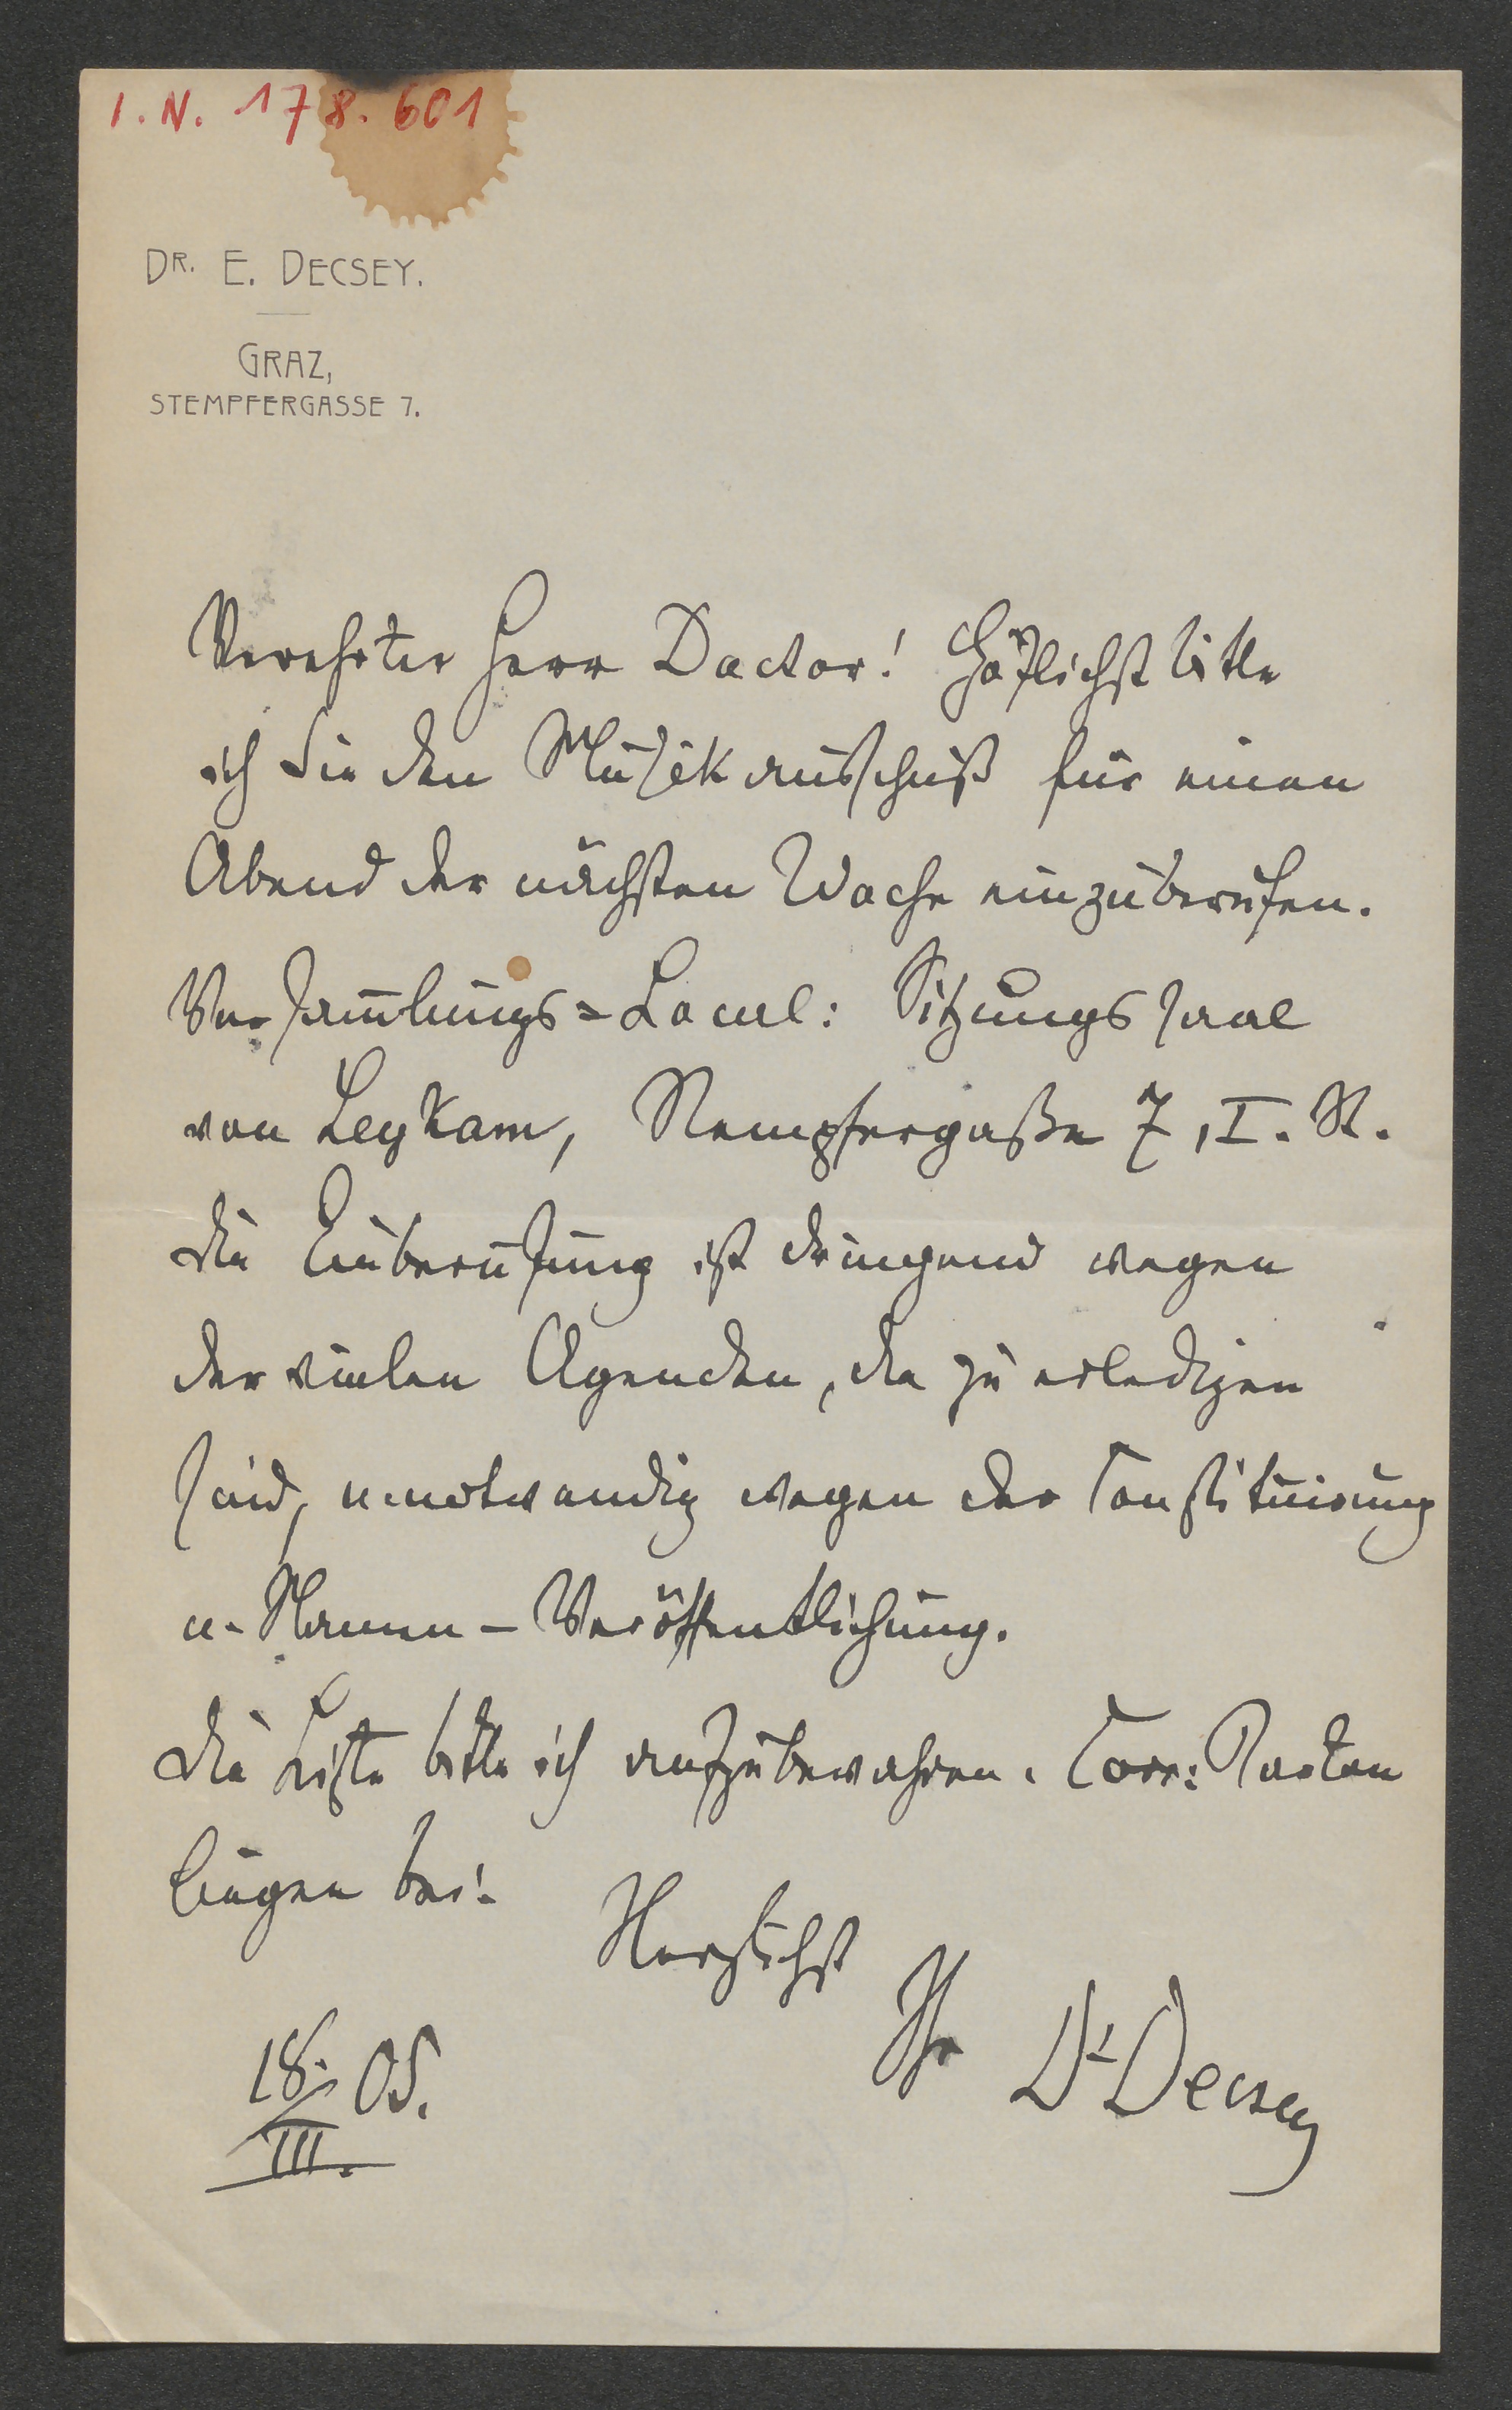 I. N. 178.601
DR. E. DECSEY.
GRAZ,
STEMPFERGASSE 7.
Verehrter Herr Doctor! Höflichst bitte
ich Sie den Musikausschuß für einen
Abend der nächsten Woche einzuberufen.
Versam̅lungs=Local: Sitzungssaal
von Leykam, Stempfergaße 7, I. St.
Die Einberufung ist dringend wegen
der vielen Agenden, die zu erledigen
sind, u notwendig wegen der Constituirung
u. Namen-Veröffentlichung.
Die Liste bitte ich aufzubewahren. Corr: Karten
liegen bei.
Herzlichst
Ihr Dr Decsey
18./III. 05.